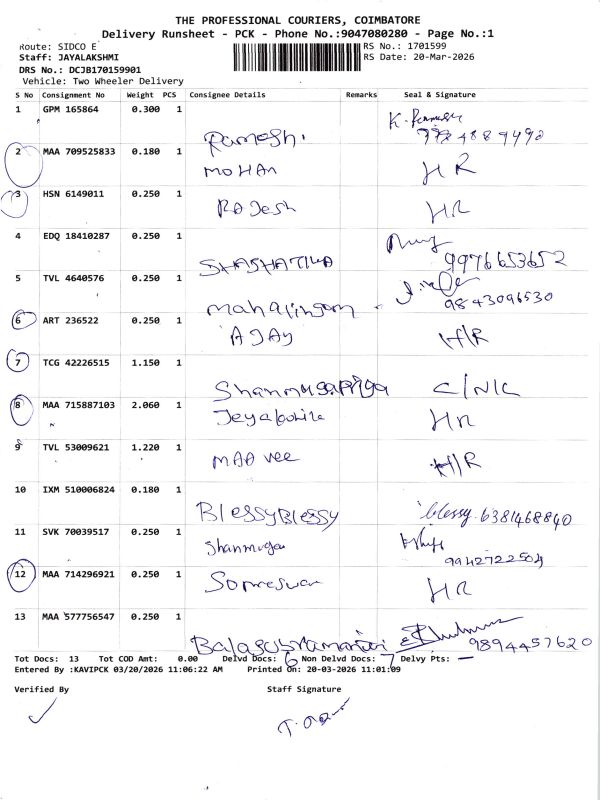 THE PROFESSIONAL COURIERS, COIMBATORE
Delivery Runsheet - PCK - Phone No.:9047080280 - Page No.:1
Route: SIDCO E RS No.: 1701599
Staff: JAYALAKSHMI RS Date: 20-Mar-2026
DRS No.: DCJB170159901
Vehicle: Two Wheeler Delivery
S No Consignment No Weight PCS Consignee Details Remarks Seal & Signature
1 GPM 165864 0.300 1
Ramesh.
2 MAA 709525833 0.180 1
MOHAN HR
3 HSN 6149011 0.250 1
RAJesh HR
4 EDQ 18410287 0.250 1
9976653652
5 TVL 4640576 0.250 1
mahalingam 9843096530
6 ART 236522 0.250 1
AJAY H/R
7 TCG 42226515 1.150 1
Shanmugapriya C/NIC
8 MAA 715887103 2.060 1
HR
9 TVL 53009621 1.220 1
H/R
10 IXM 510006824 0.180 1
BlessyBlessy blessy. 6381468840
11 SVK 70039517 0.250 1
Shanmuga 9942722504
12 MAA 714296921 0.250 1
Someswar HR
13 MAA 577756547 0.250 1
9894457620
Tot Docs: 13 Tot COD Amt: 0.00 Delvd Docs: 6 Non Delvd Docs: 7 Delvy Pts: —
Entered By :KAVIPCK 03/20/2026 11:06:22 AM Printed On: 20-03-2026 11:01:09
Verified By Staff Signature